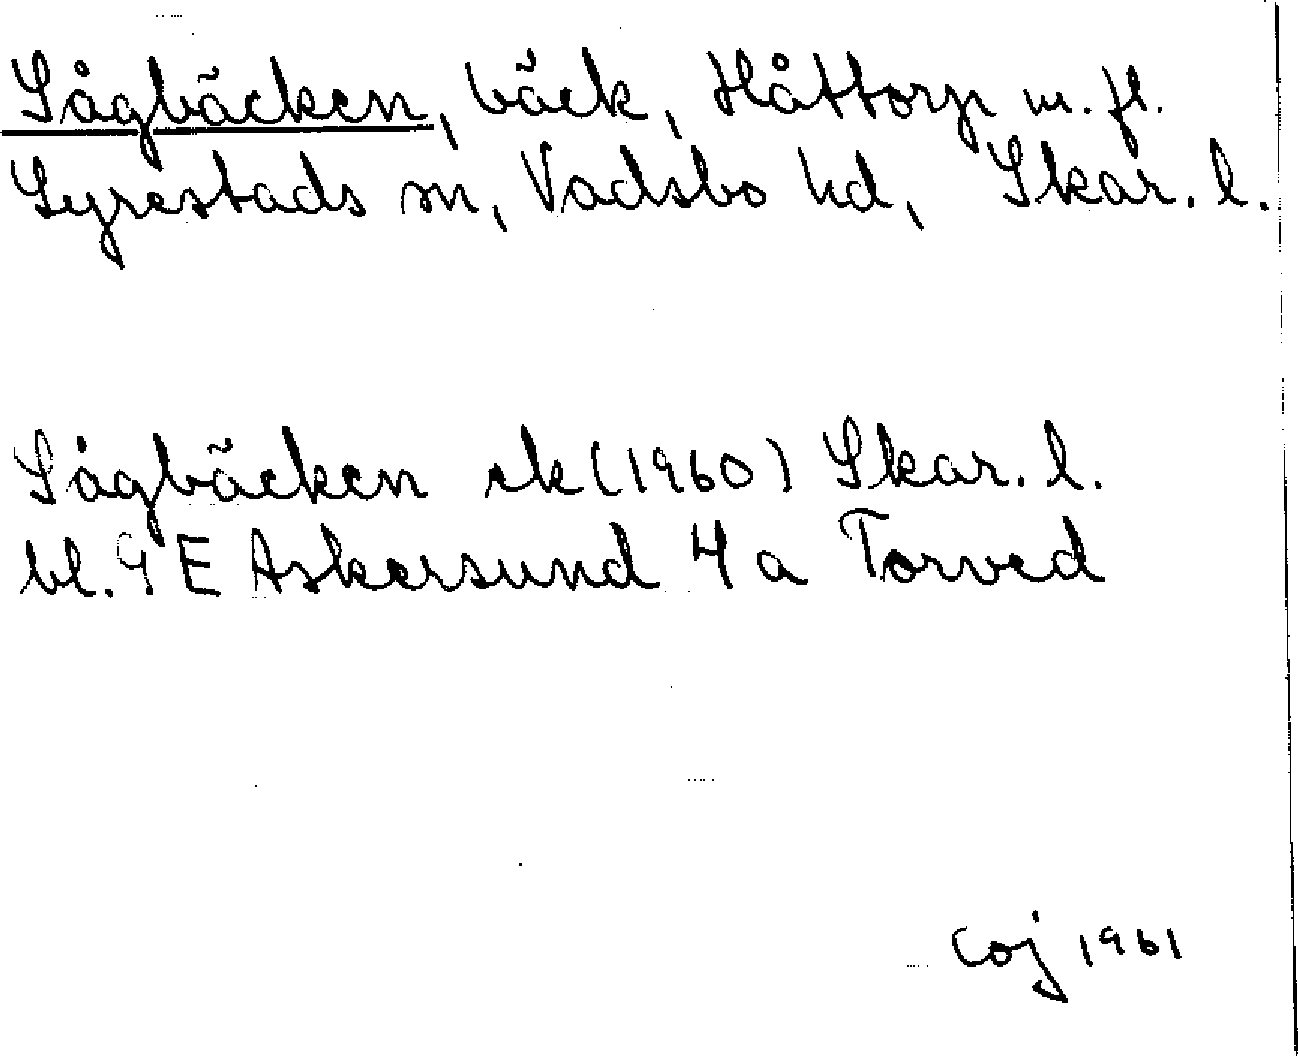 Sågbäcken, bäck, Håttorp m. fl.
Lyrestads sn, Vadsbo hd, Skar. l.
Sågbäcken ek (1960) Skar. l.
bl. 9 E Askersund 4 a Torved
Coj 1961